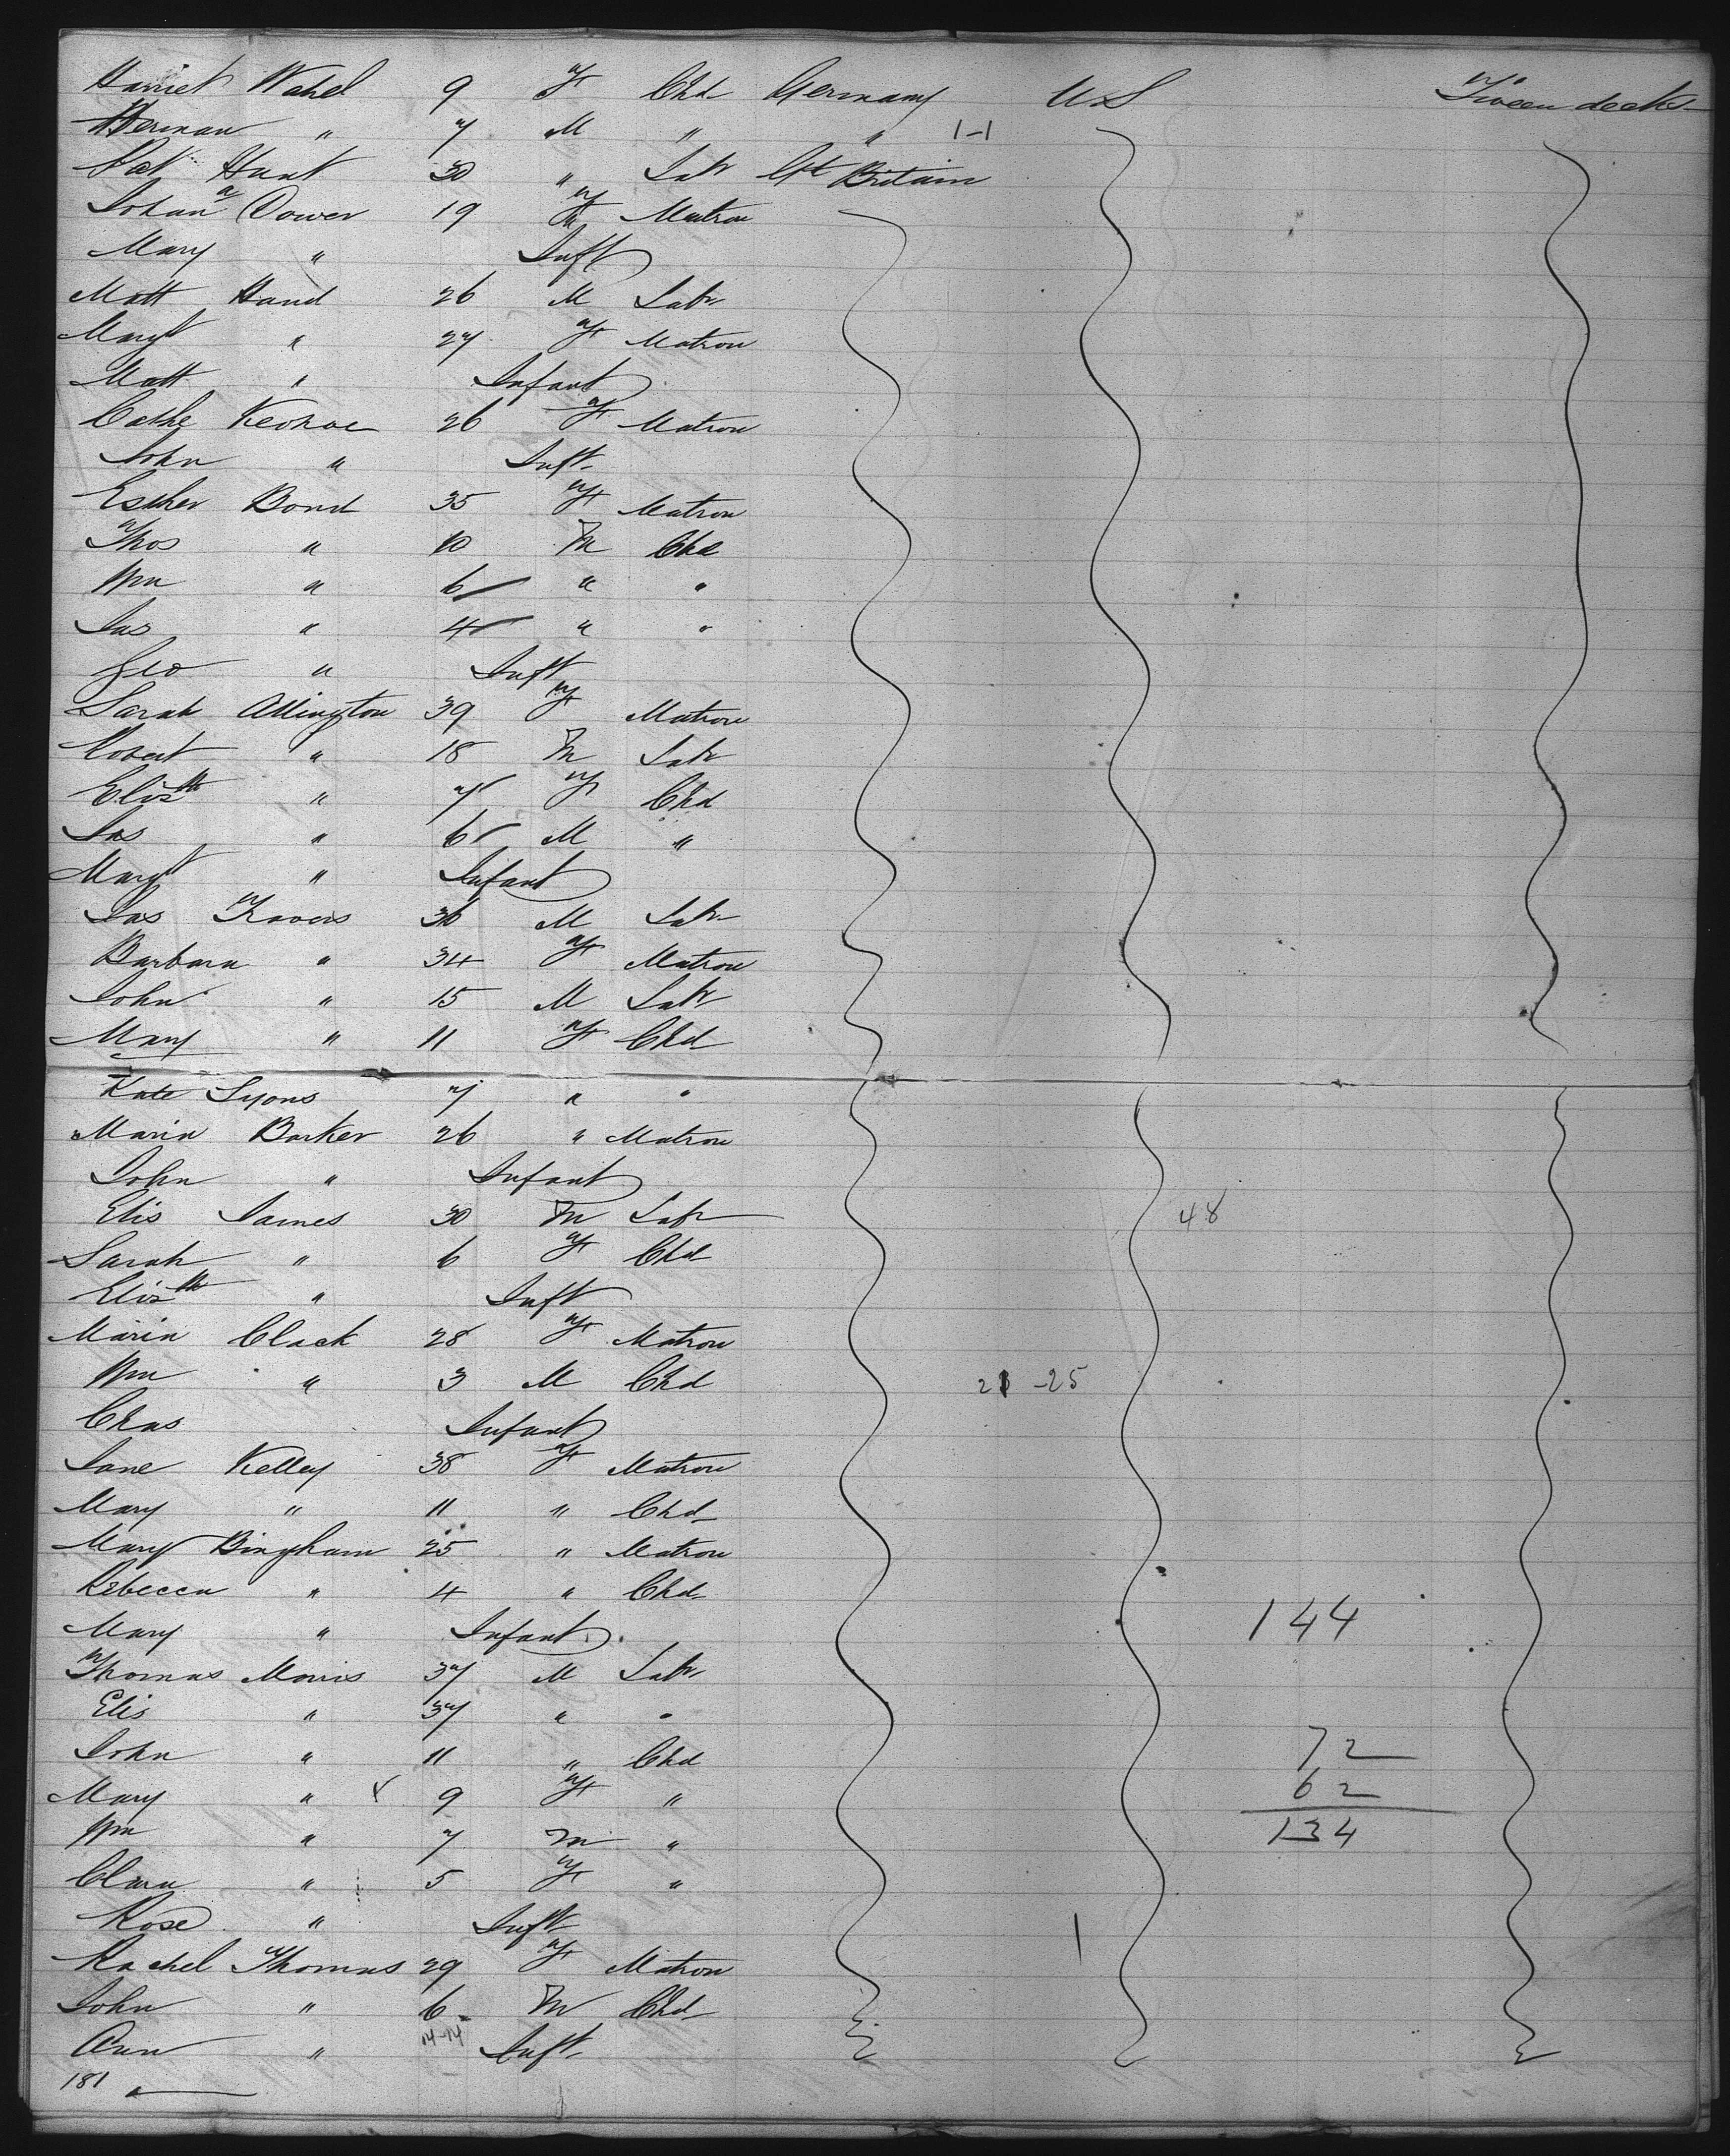 Harriet Wahel 9 F Chd Germany US Tween decks
Herman " 7 M " " 1-1
Pat Hunt 30 " Labr Gt Britain
Johana Dower 19 F Matron
Mary " Inft
Matt Hand 26 M Labr
Margt " 27 F Matron
Matt " Infant
Cathe Keohoe 26 F Matron
John " Inft
Esther Bond 35 F Matron
Thos " 10 M Chd
Wm " 6 " "
Jas " 4 " "
Geo " Inft
Sarah Allington 39 F Matron
Robert " 18 M Labr
Elizth " 7 F Chd
Jas " 6 M "
Margt " Infant
Jas Travers 36 M Labr
Barbara " 34 F Matron
John " 15 M Labr
Mary " 11 F Chd
Kate Lyons 7 " "
Maria Barker 26 " Matron
John " Infant
Elis James 30 M Labr 48
Sarah " 6 F Chd
Elizth " Inft
Maria Clack 28 F Matron
Wm " 3 M Chd 21-25
Chas Infant
Jane Kelley 38 F Matron
Mary " 11 " Chd
Mary Bingham 25 " Matron
Rebecca " 4 " Chd 144
Mary " Infant
Thomas Morris 37 M Labr
Elis " 37 " "
John " 11 " Chd 72
Mary " x 9 F " 62
Wm " 7 M " 134
Clara " 5 F "
Rose " Inft 1
Rachel Thomas 29 F Matron
John " 6 M Chd
Ann " 14-14 Inft
181